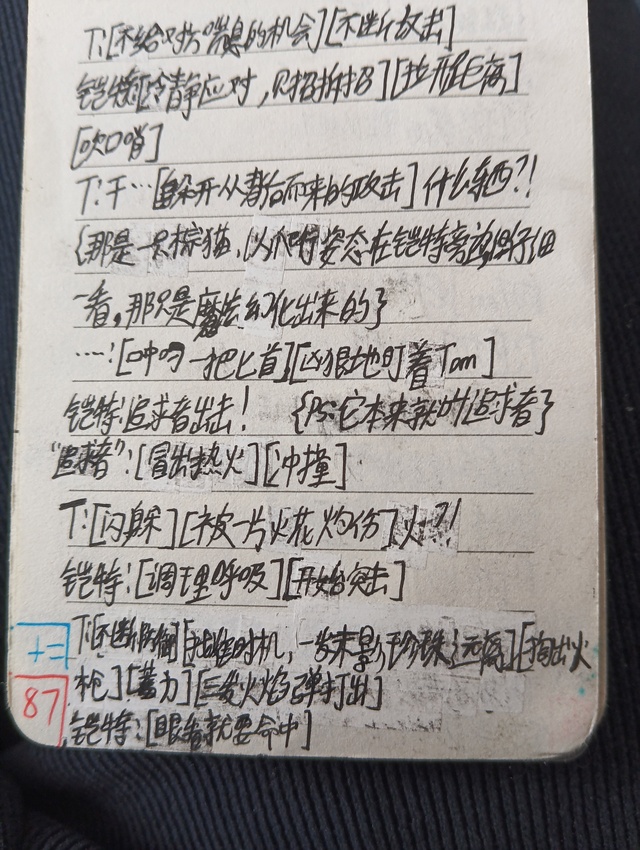 T:[不给对方喘息的机会][不断攻击]
铠特:[冷静应对,见招拆招][拉开距离]
[吹口哨]
T:干…[躲开从背后而来的攻击]什么东西?!
{那是一只棕猫,以爬行姿态在铠特旁边但仔细
一看,那只是魔法幻化出来的}
……:[叼向一把匕首][凶狠地盯着Tom]
铠特:追求者出击! {PS:它本来就叫追求者}
"追求者":[冒出热火][冲撞]
T:[闪躲][被一片火花灼伤]火?!
铠特:[调理呼吸][开始突击]
T:[不断防御][找准时机,一发末影珍珠远离][掏出火
枪][蓄力][三发火焰弹打出]
铠特:[眼看就要命中]
十二
87